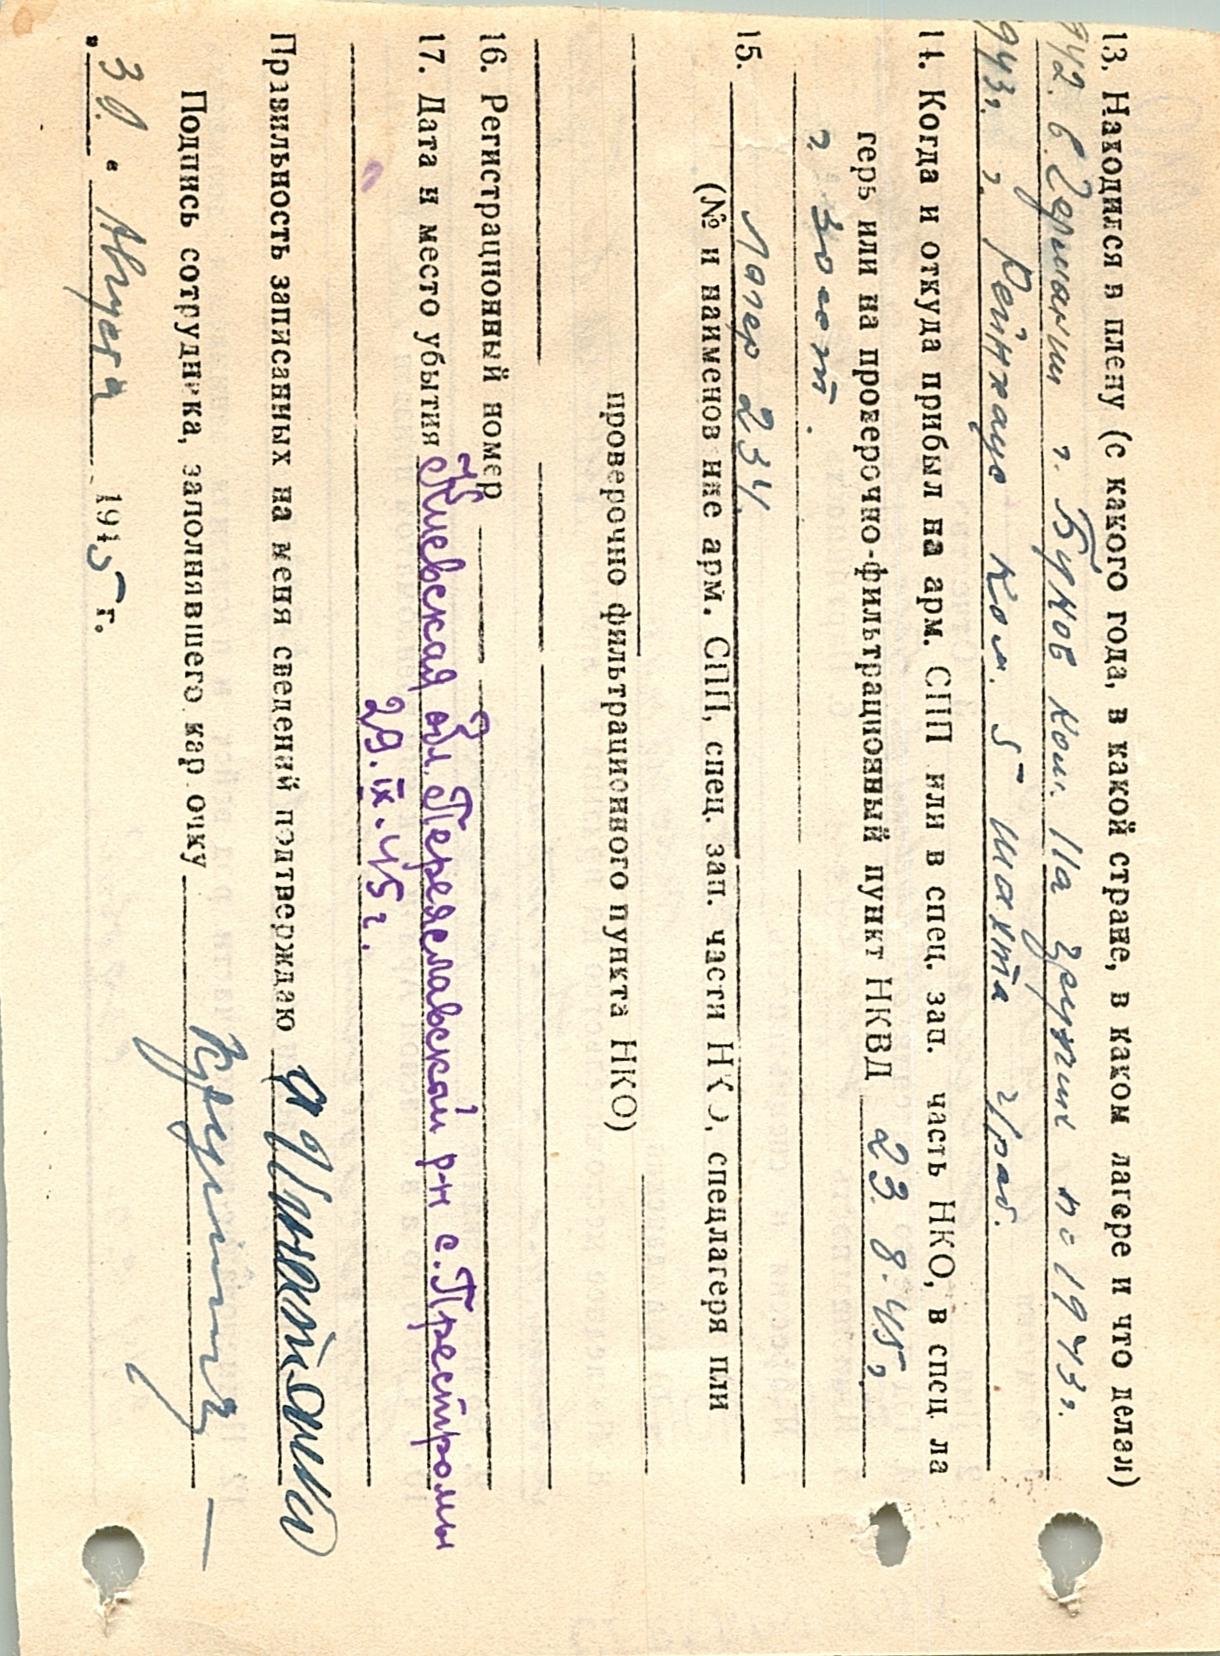 13. Находился в плену (с какого года, в какой стране, в каком лагере и что делал)
942. в Германии г. Бунов ком. 11а грузчик по 1943 г.
943 г. г. ком. 5 шахта
14. Когда и откуда прибыл на арм. СПП или в спец. зап. часть НКО, в спец. ла
герь или на проверочно-фильтрационный пункт НКВД 23. 8. 45 г
г. Зост.
15. Лагер 234.
(№ и наименов ние арм. СПП, спец. зап. части НКО, спецлагеря или
проверочно фильтрационного пункта НКО)
16. Регистрационный номер
17. Дата и место убытия Киевская обл. Переяславской р-н с. Престромы
29. IX. 45 г.
Правильность записанных на меня сведений подтверждаю
Подпись сотрудника, заполнявшего кар очку
„30.“ Августа 1945 г.